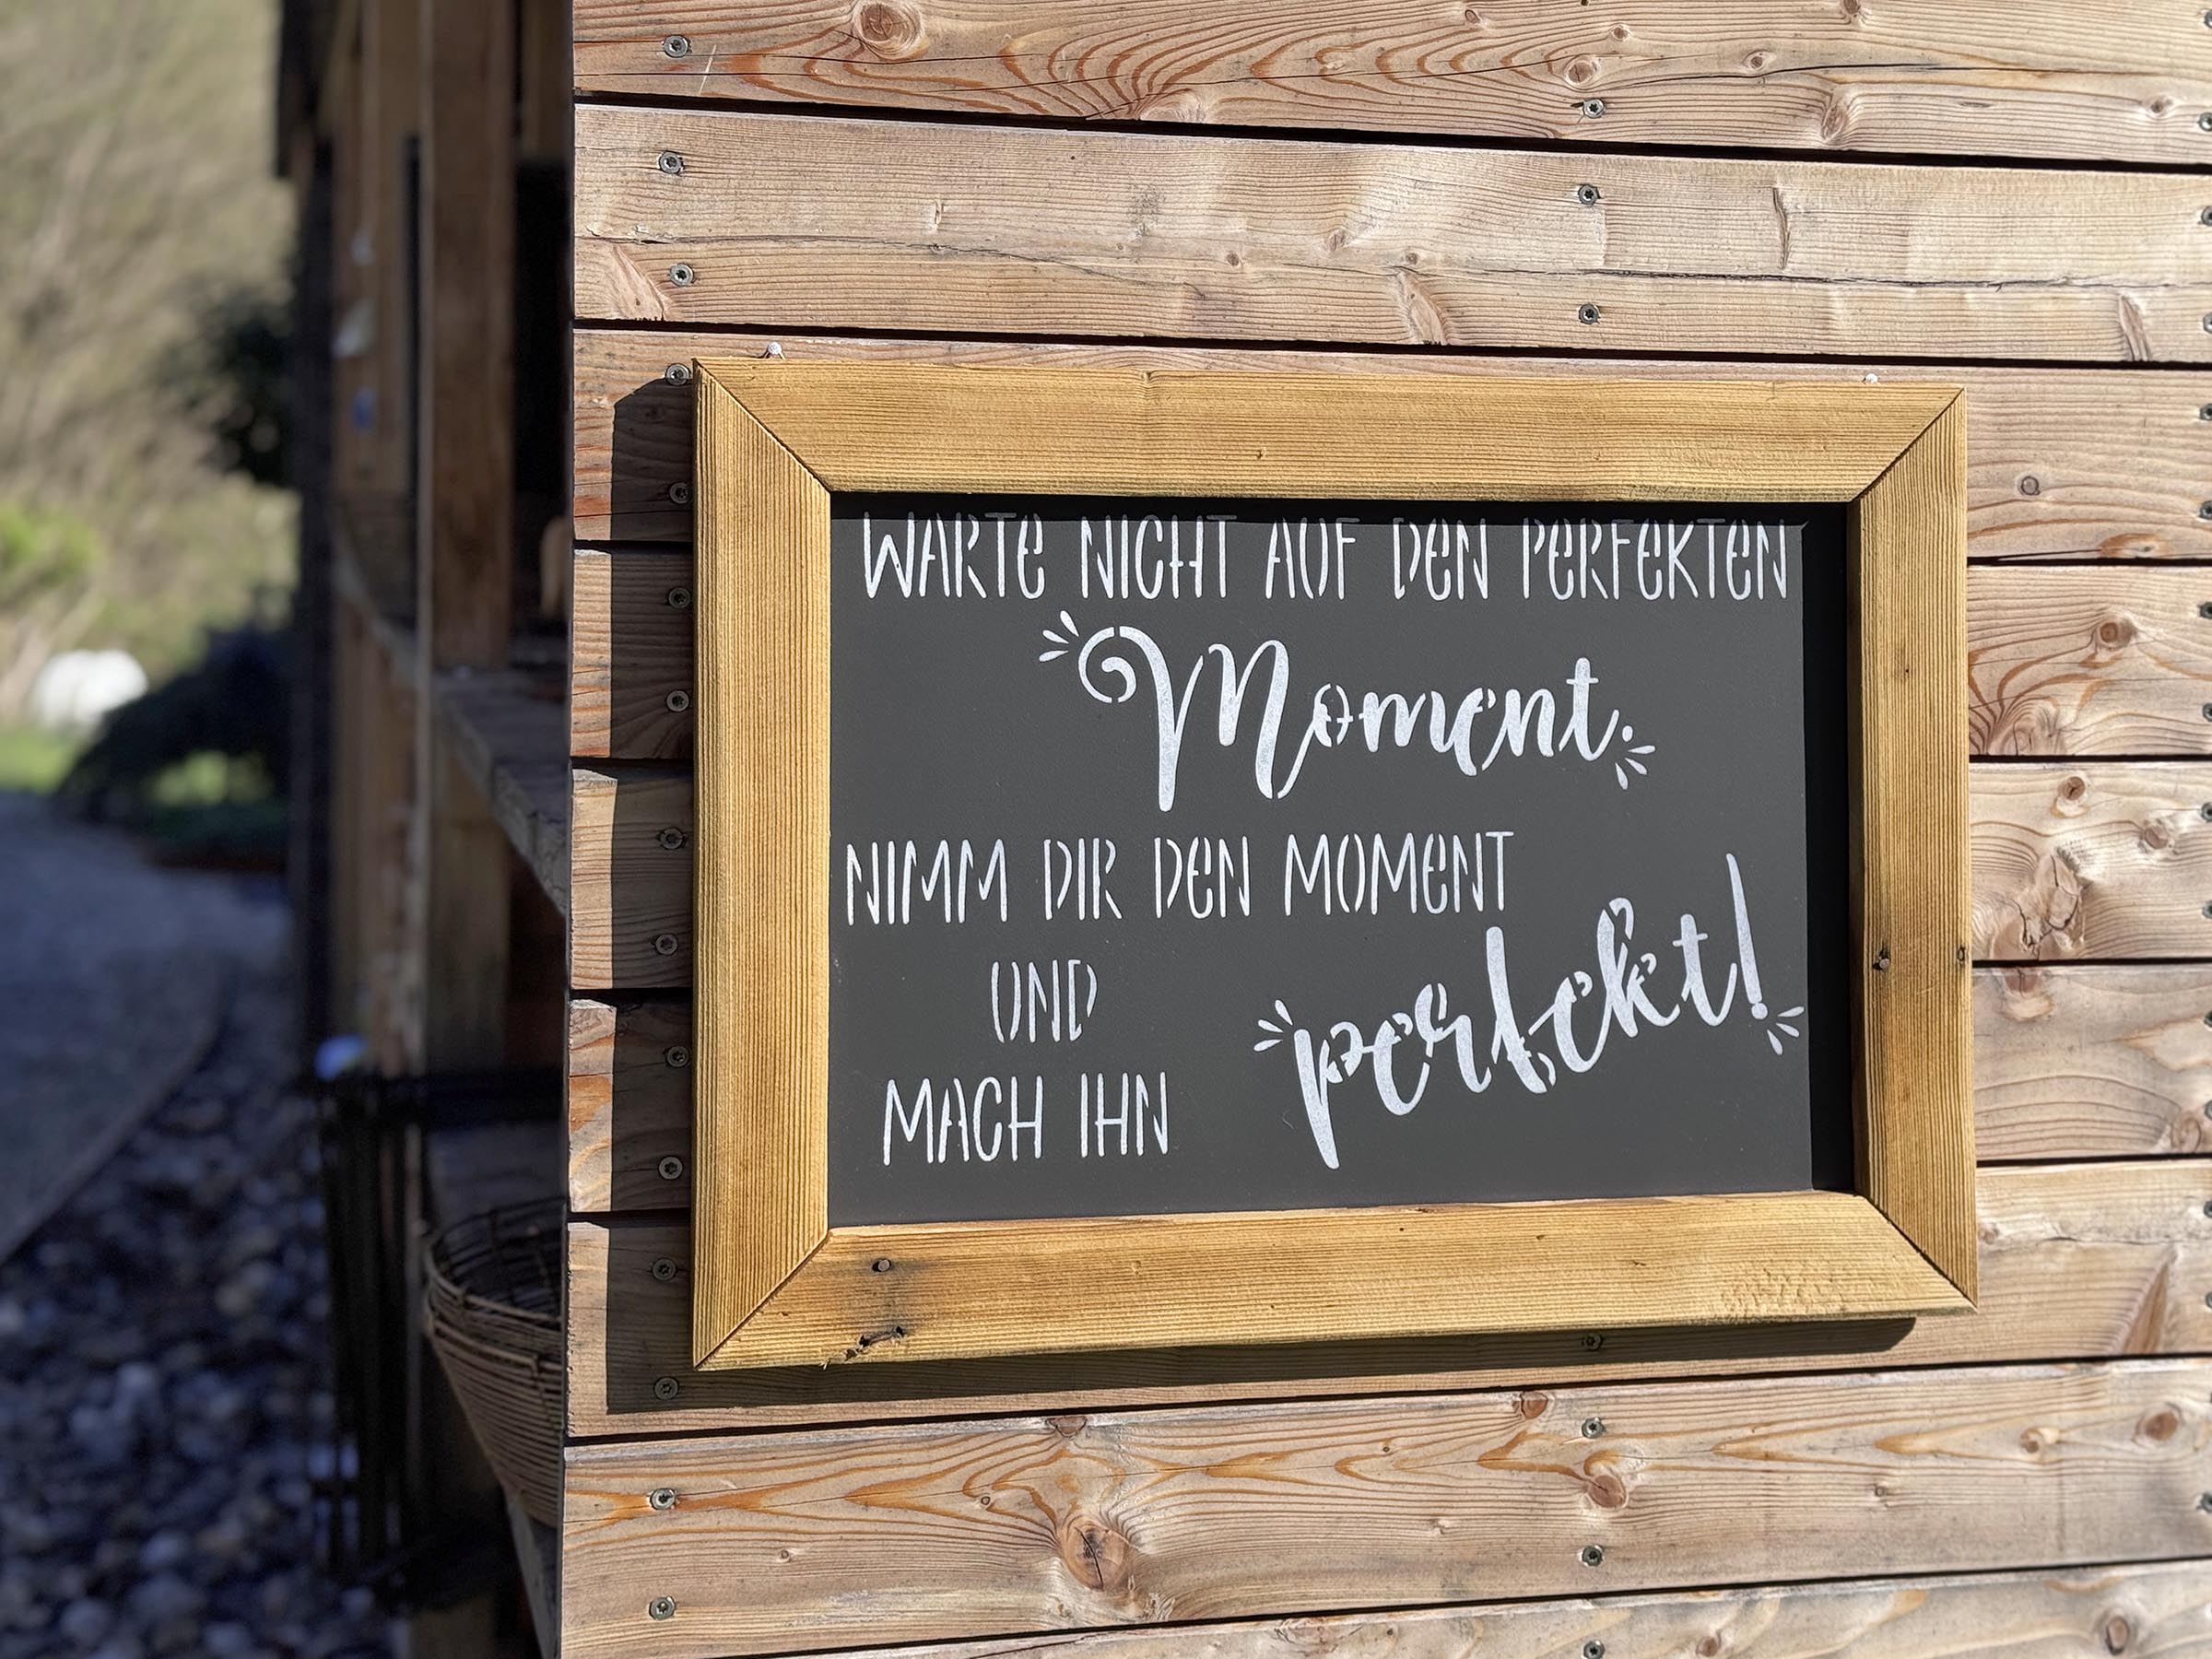 WARTE NICHT AUF DEN PERFEKTEN
Moment.
NIMM DIR DEN MOMENT
UND
MACH IHN
perfekt!